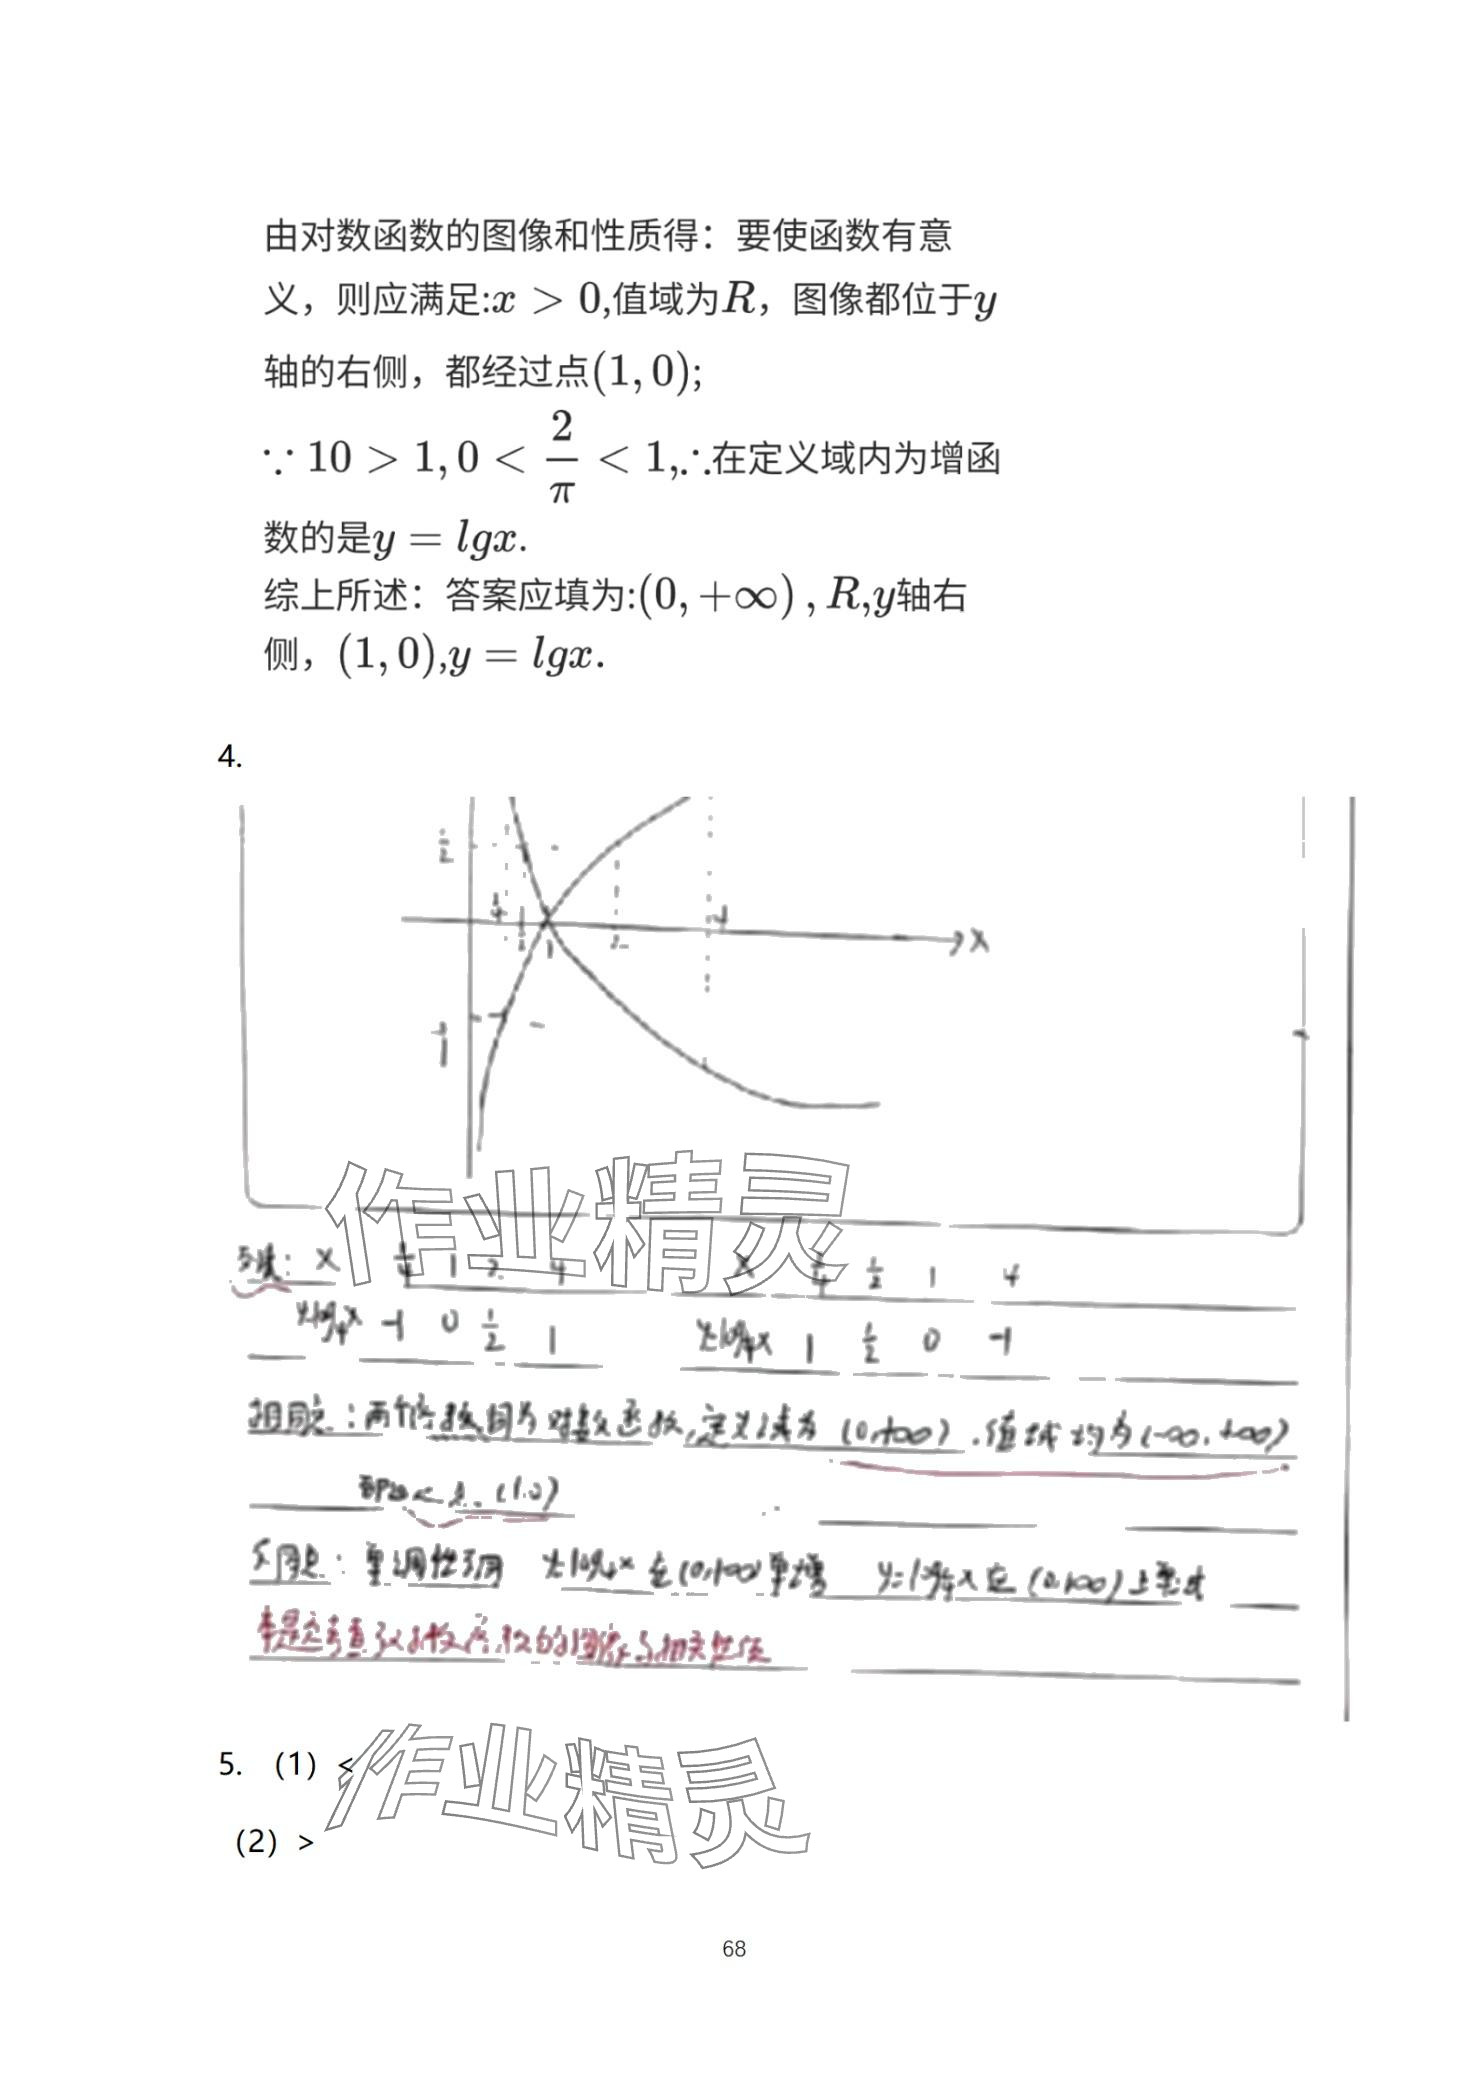 由对数函数的图像和性质得：要使函数有意
义，则应满足:x > 0,值域为R，图像都位于y
轴的右侧，都经过点(1,0);
∵ 10 > 1, 0 < 2/π < 1,∴在定义域内为增函
数的是y = lgx.
综上所述：答案应填为:(0,+∞), R,y轴右
侧，(1,0),y = lgx.
4.
1/2
1/4 1/2 1 2 4 x
-1
列表： x 1/4 1 2 4 x 1/4 1/2 1 4
y=log₄x -1 0 1/2 1 1 1/2 0 -1
相同点：两个函数均为对数函数,定义域为(0,+∞).值域均为(-∞,+∞)
点(1.0)
不同点：单调性不同 y=log₄x在(0,+∞)单增 y=log x在(0,+∞)上单减
本题考查了对数函数的图像与相关性质
作业精灵
5. （1）<
（2）>
作业精灵
68